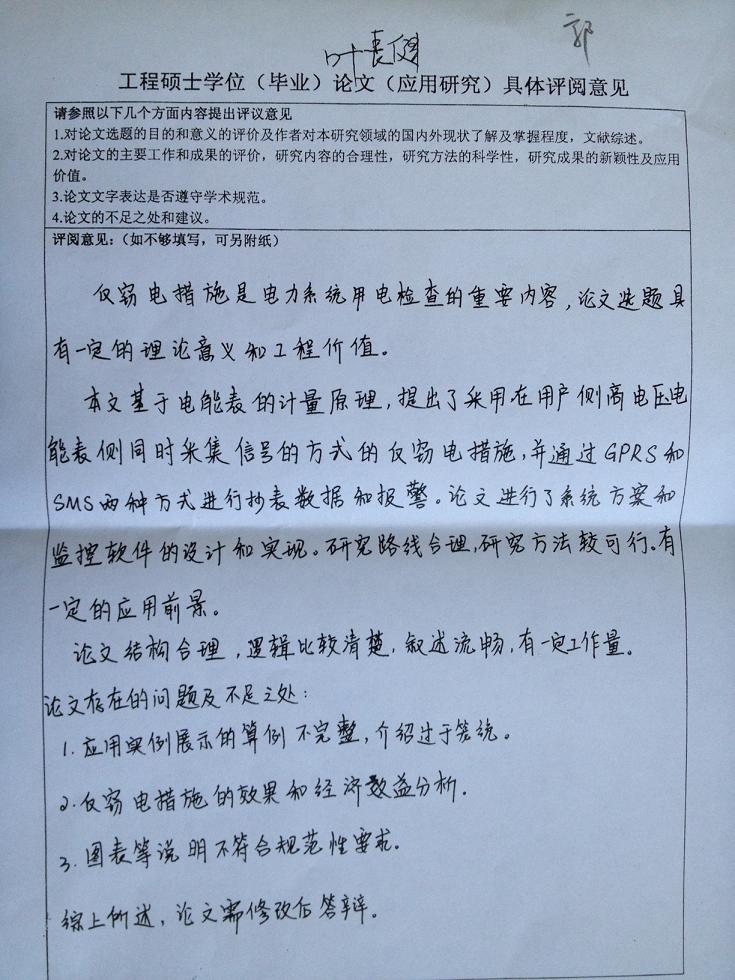 叶 郭
工程硕士学位（毕业）论文（应用研究）具体评阅意见
请参照以下几个方面内容提出评议意见
1.对论文选题的目的和意义的评价及作者对本研究领域的国内外现状了解及掌握程度，文献综述。
2.对论文的主要工作和成果的评价，研究内容的合理性，研究方法的科学性，研究成果的新颖性及应用
价值。
3.论文文字表达是否遵守学术规范。
4.论文的不足之处和建议。
评阅意见：（如不够填写，可另附纸）
反窃电措施是电力系统用电检查的重要内容，论文选题具
有一定的理论意义和工程价值。
本文基于电能表的计量原理，提出了采用在用户侧高电压电
能表侧同时采集信号的方式的反窃电措施，并通过GPRS和
SMS两种方式进行抄表数据和报警。论文进行了系统方案和
监控软件的设计和实现。研究路线合理，研究方法较可行。有
一定的应用前景。
论文结构合理，逻辑比较清楚，叙述流畅，有一定工作量。
论文存在的问题及不足之处：
1. 应用实例展示的算例不完整，介绍过于笼统。
2. 反窃电措施的效果和经济效益分析.
3. 图表等说明不符合规范性要求。
综上所述，论文需修改后答辩。